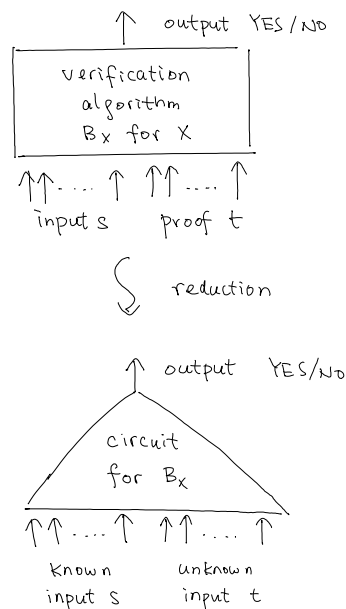 output YES/NO
verification
algorithm
Bx for X
.....
....
input s
proof t
reduction
output YES/NO
circuit
for Bx
....
....
known
unknown
input s
input t